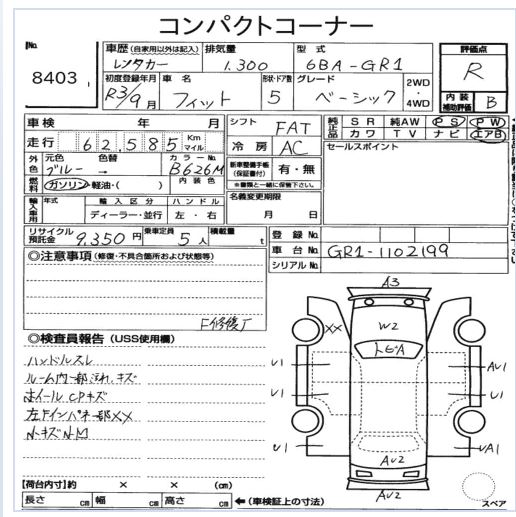 コンパクトコーナー
No. 8403
車歴 (自家用以外は記入) レンタカー
排気量 1.300
型式 6BA-GR1
評価点 R
初度登録年月 R3/9月
車名 フィット
形状・ドア数 5
グレード ベーシック
2WD・4WD
内装補助評価 B
車検 年 月
シフト FAT
純正品 SR 純AW PS PW
カワ TV ナビ エアB
走行 62,585 Km マイル
冷房 AC
セールスポイント
外色 元色 ブルー → 色替
カラーNo. B626M
新車整備手帳(保証書付) 有・無
※書類と一緒に保管下さい。
燃料 ガソリン・軽油・( )
内装色
名義変更期限 月 日
輸入車用 年式 輸入区分 ディーラー・並行
ハンドル 左・右
リサイクル預託金 9,350円
乗車定員 5人
積載量 t
登録No.
車台No. GR1-1102199
シリアルNo.
◎注意事項 (修復・不具合箇所および状態等)
F修復丁
◎検査員報告 (USS使用欄)
ハンドルスレ
ルーム内一部汚れ、キズ
ホイールCPキズ
左Fインパネ一部XX
小キズ小凹
A3
XX
W2
トビA
U1
AU1
U1
U1
U1
UA1
AU2
AU2
スペア
【荷台内寸】約 × × (cm)
長さ cm 幅 cm 高さ cm ←(車検証上の寸法)